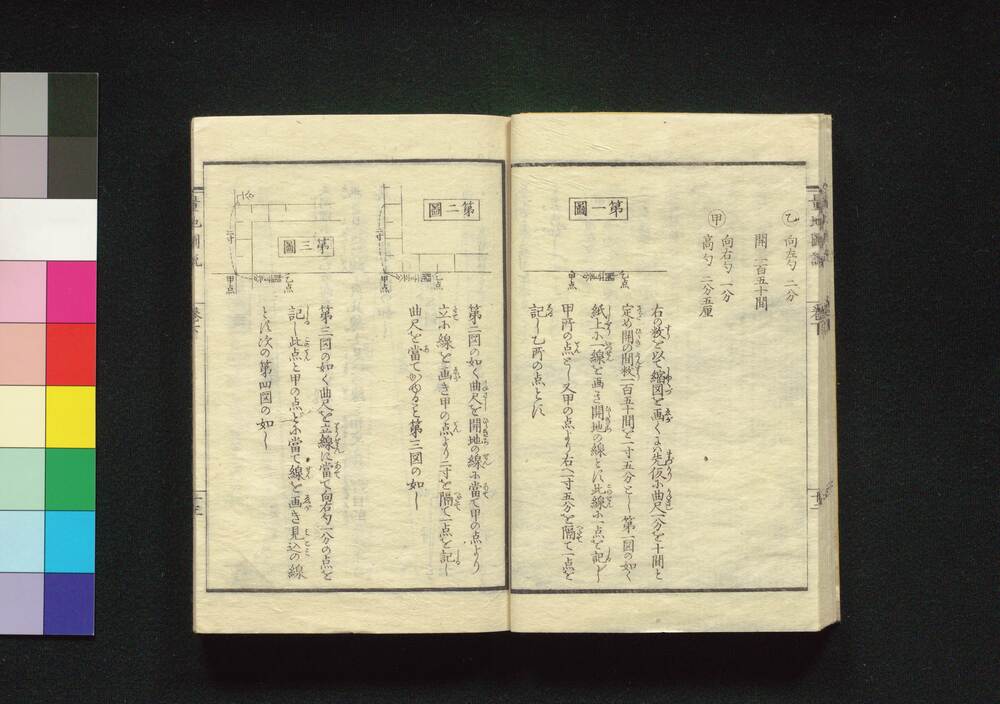 乙 向左勾 二分
開 一百五十間
甲 向右勾 一分
高勾 二分五厘
第一圖
甲点
乙点
右の数を以て縮図を画くには先仮に曲尺一分を十間と
定め開の間数一百五十間を一寸五分とし第一図の如く
紙上に一線を画き開地の線とす此線に一点を記し
甲所の点とし又甲の点より右へ一寸五分を隔て一点を
記し乙所の点とす
第二圖
二寸
甲点
乙点
第二図の如く曲尺を開地の線に当て甲の点より
立に線を画き甲の点より二寸を隔て一点を記し
曲尺を当てかゆると第三図の如し
第三圖
二寸
甲点
乙点
第三図の如く曲尺を立線に當て向右勾一分の点を
記し此点と甲の点とに當て線を画き見込の線
とす次の第四図の如し